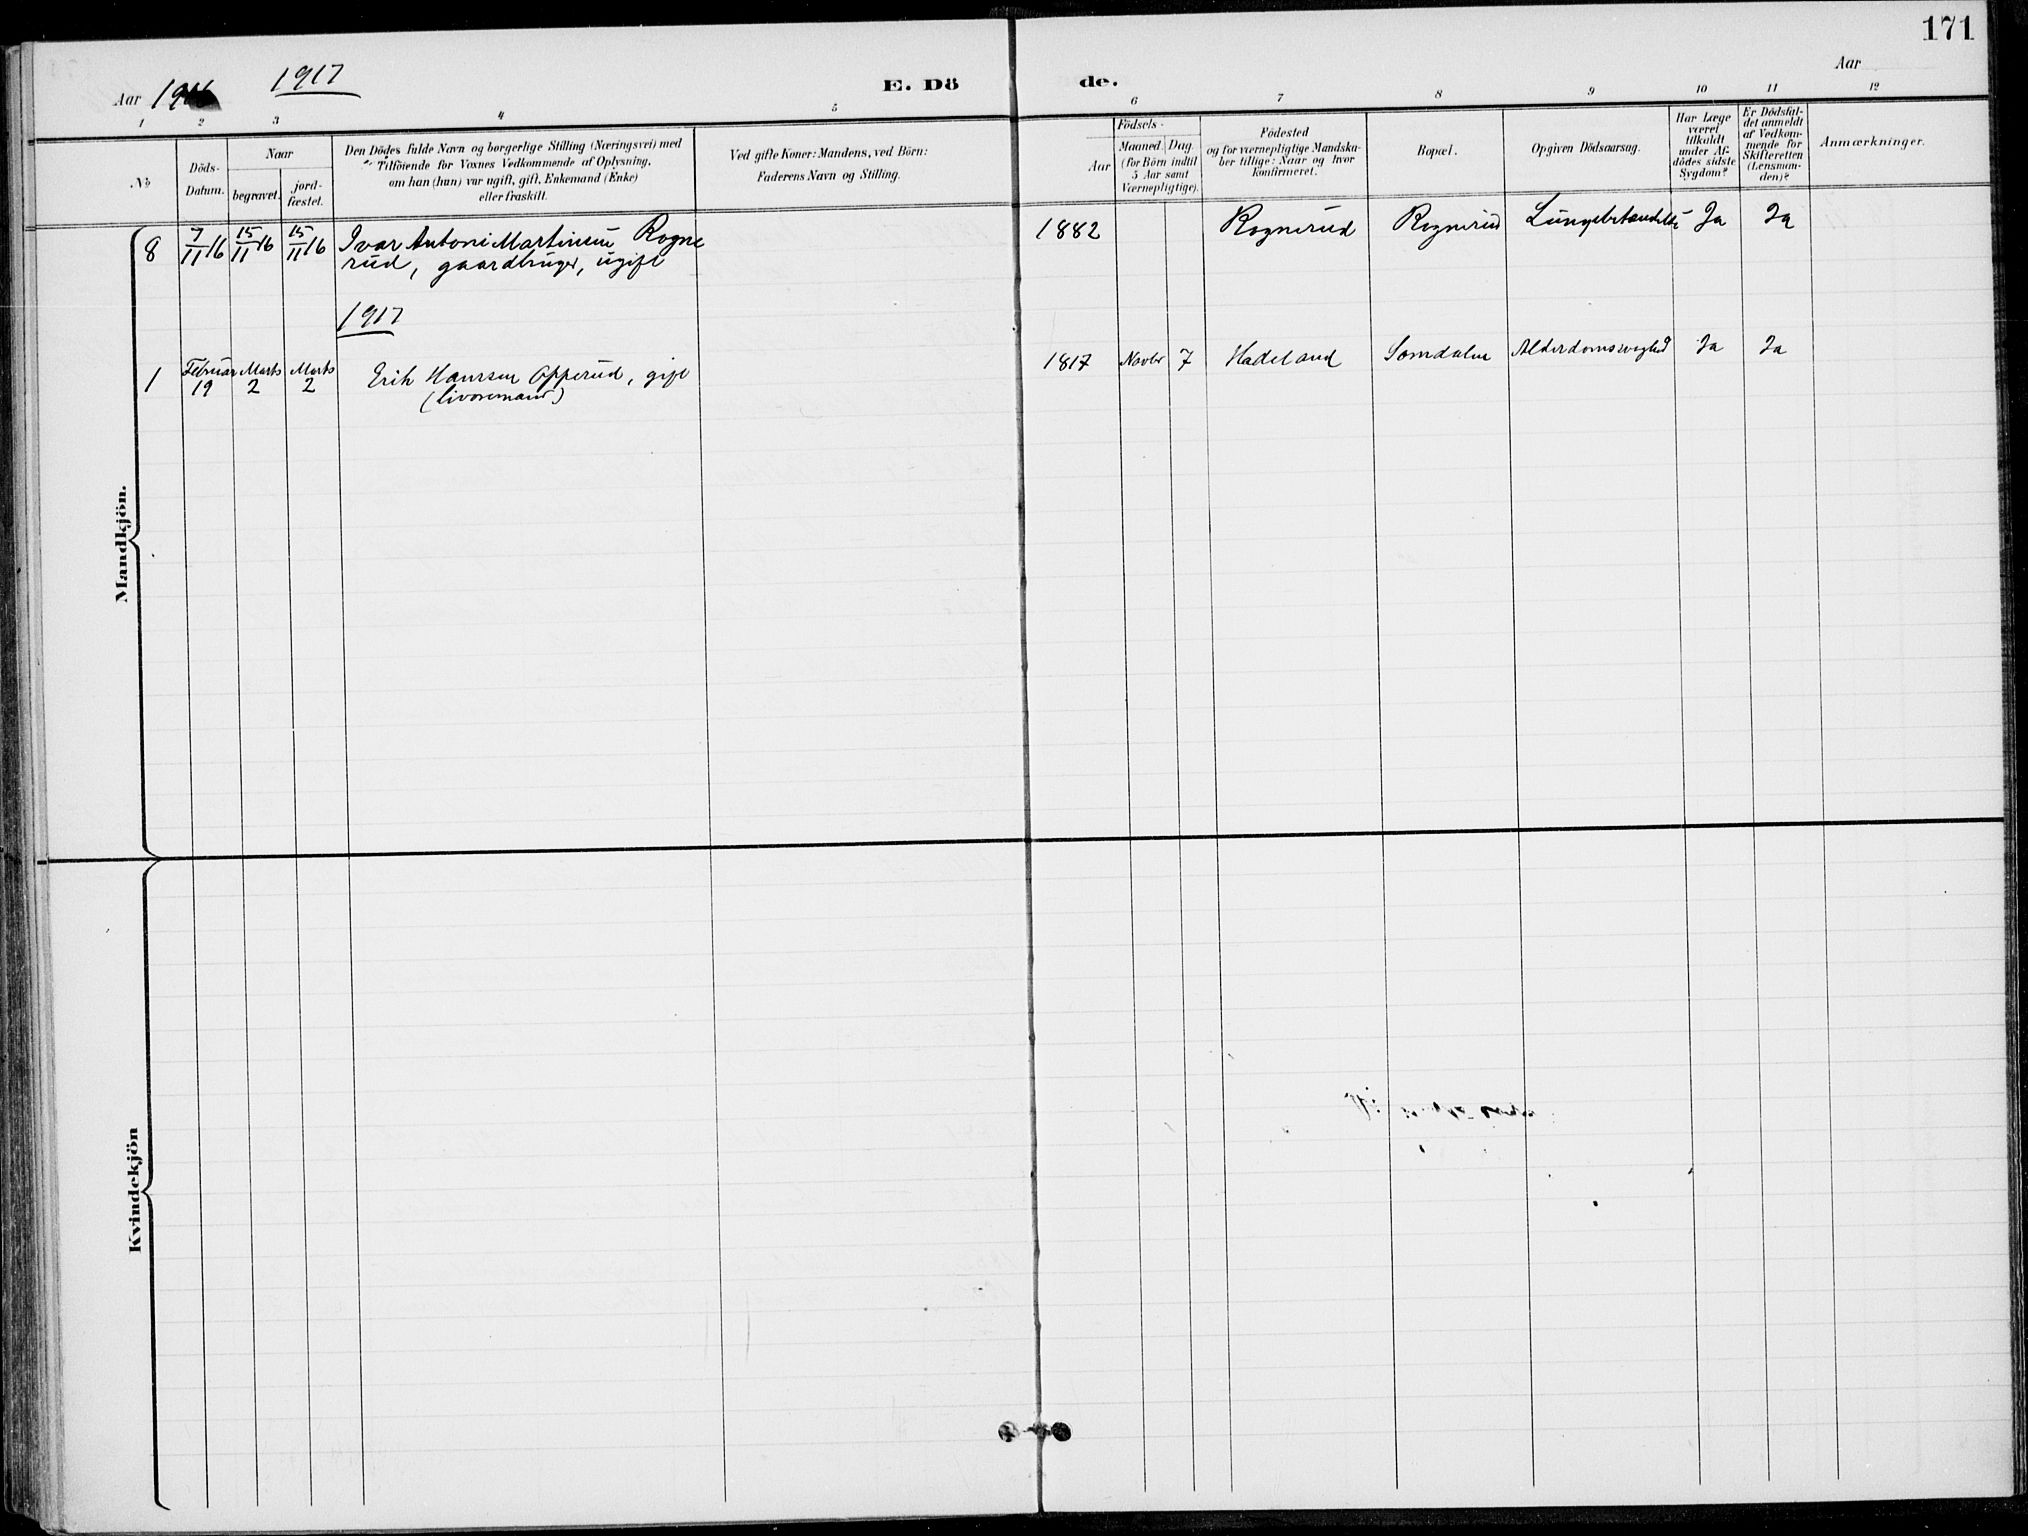 171
Aar 1916 1917
E. Dö de.
Aar
1 2 3 4 5 6 7 8 9 10 11 12
No
Döds-
Datum.
Naar
begravet.
jord-
fæstet.
Den Dödes fulde Navn og borgerlige Stilling (Næringsvei) med
Tilföiende for Voxnes Vedkommende af Oplysning,
om han (hun) var ugift, gift, Enkemand (Enke)
eller fraskilt.
Ved gifte Koner: Mandens, ved Börn:
Faderens Navn og Stilling.
Födsels-
Aar
Maaned.
Dag.
(for Börn indtil
5 Aar samt
Værnepligtige).
Födested
og for værnepligtige Mandska-
ber tillige: Naar og hvor
konfirmeret.
Bopæl.
Opgiven Dödsaarsag.
Har Læge
været
tilkaldt
under Af-
dödes sidste
Sygdom?
Er Dödsfal-
det anmeldt
af Vedkom-
mende for
Skifteretten
(Lensman-
den)?
Anmærkninger.
Mandkjön.
8 7/11 16 15/11 16 15/11 16 Ivar Antoni Martinsen Rogne
rud, gaardbruger, ugift
1882 Rognerud Rognerud Ja Ja
1917
1 Februar 19 Marts 2 Marts 2 Erik Hansen Opperud, gift
1817 Novbr 7 Hadeland Alderdomssvaghed Ja Ja
Kvindekjön